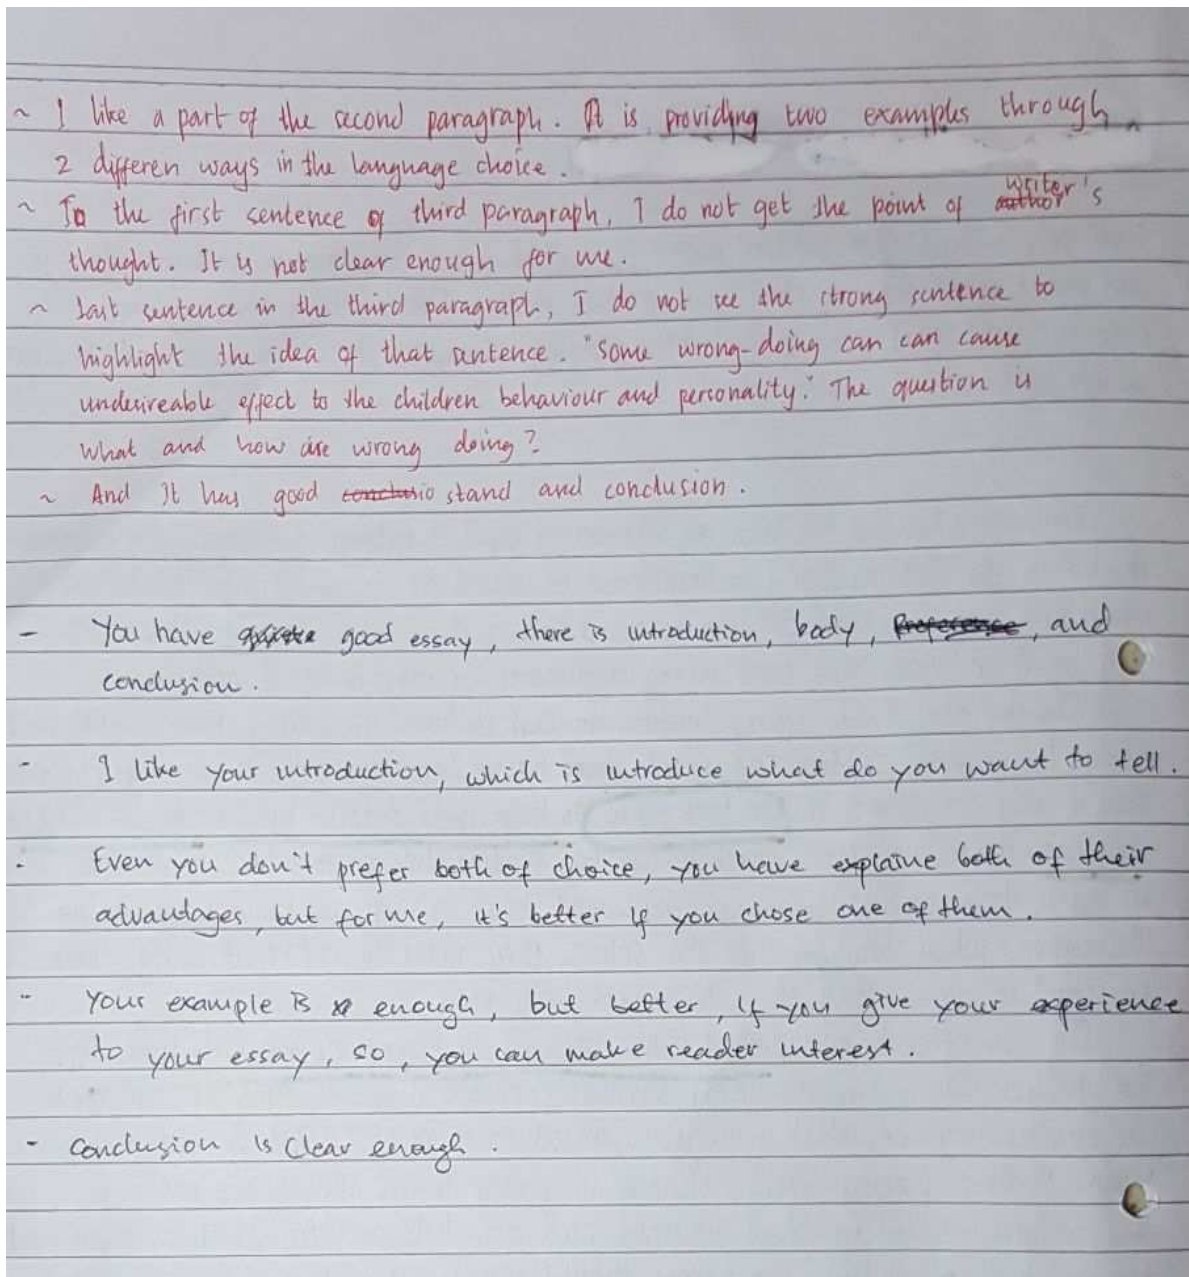 ~ I like a part of the second paragraph. It is providing two examples through
2 differen ways in the language choice.
~ To the first sentence of third paragraph, I do not get the point of writer's
thought. It is not clear enough for me.
~ last sentence in the third paragraph, I do not see the strong sentence to
highlight the idea of that sentence. "some wrong-doing can can cause
undesireable effect to the children behaviour and personality." The question is
what and how are wrong doing?
~ And It has good stand and conclusion.
- You have good essay, there is introduction, body, , and
conclusion.
- I like your introduction, which is introduce what do you want to tell.
- Even you don't prefer both of choice, you have explaine both of their
advantages, but for me, it's better if you chose one of them.
- Your example is enough, but better, if you give your experience
to your essay, so, you can make reader interest.
- Conclusion is clear enough.